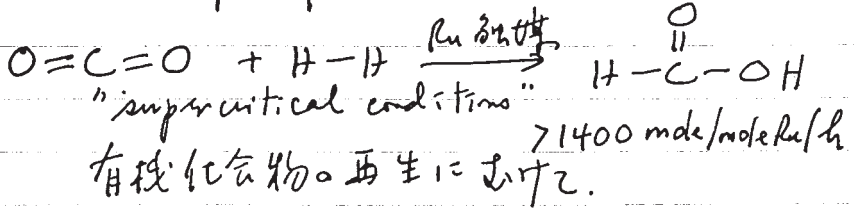 O=C=O + H-H Ru触媒 H-C-OH
O
"supercritical conditions"
>1400 mole/moleRu/h
有機化合物の再生にむけて.